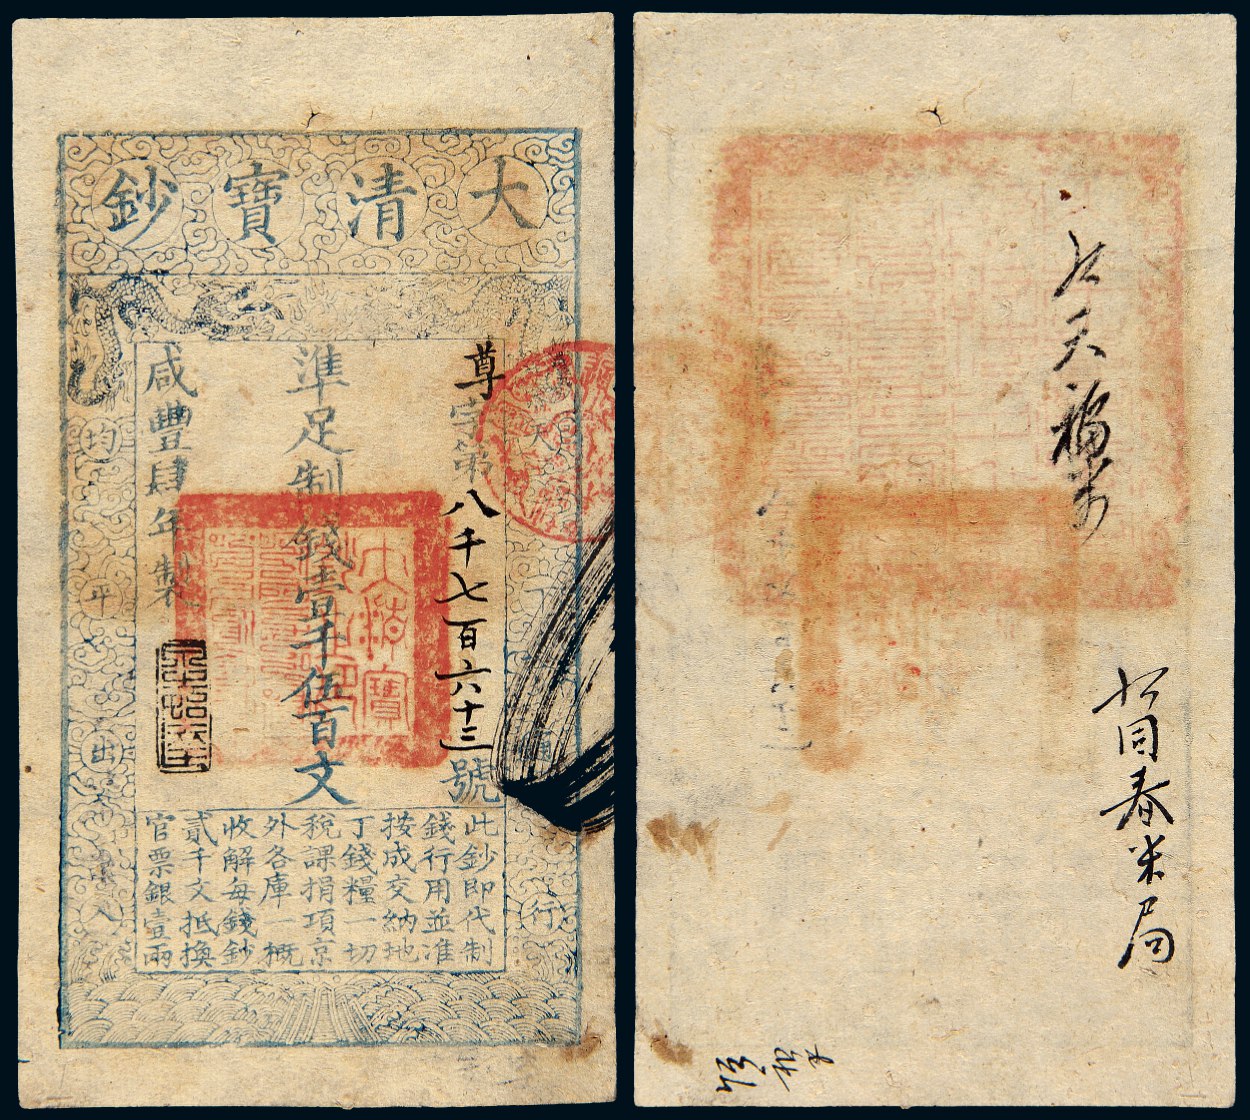 大清寶鈔
尊字第八千七百六十三號
準足制錢壹千伍百文
咸豐肆年製
天
下
通
行
均
平
出
入
此鈔即代制
錢行用並准
按成交納地
丁錢糧一切
稅課捐項京
外各庫一概
收解每錢鈔
貳千文抵換
官票銀壹兩
大清寶
天福
同泰米局